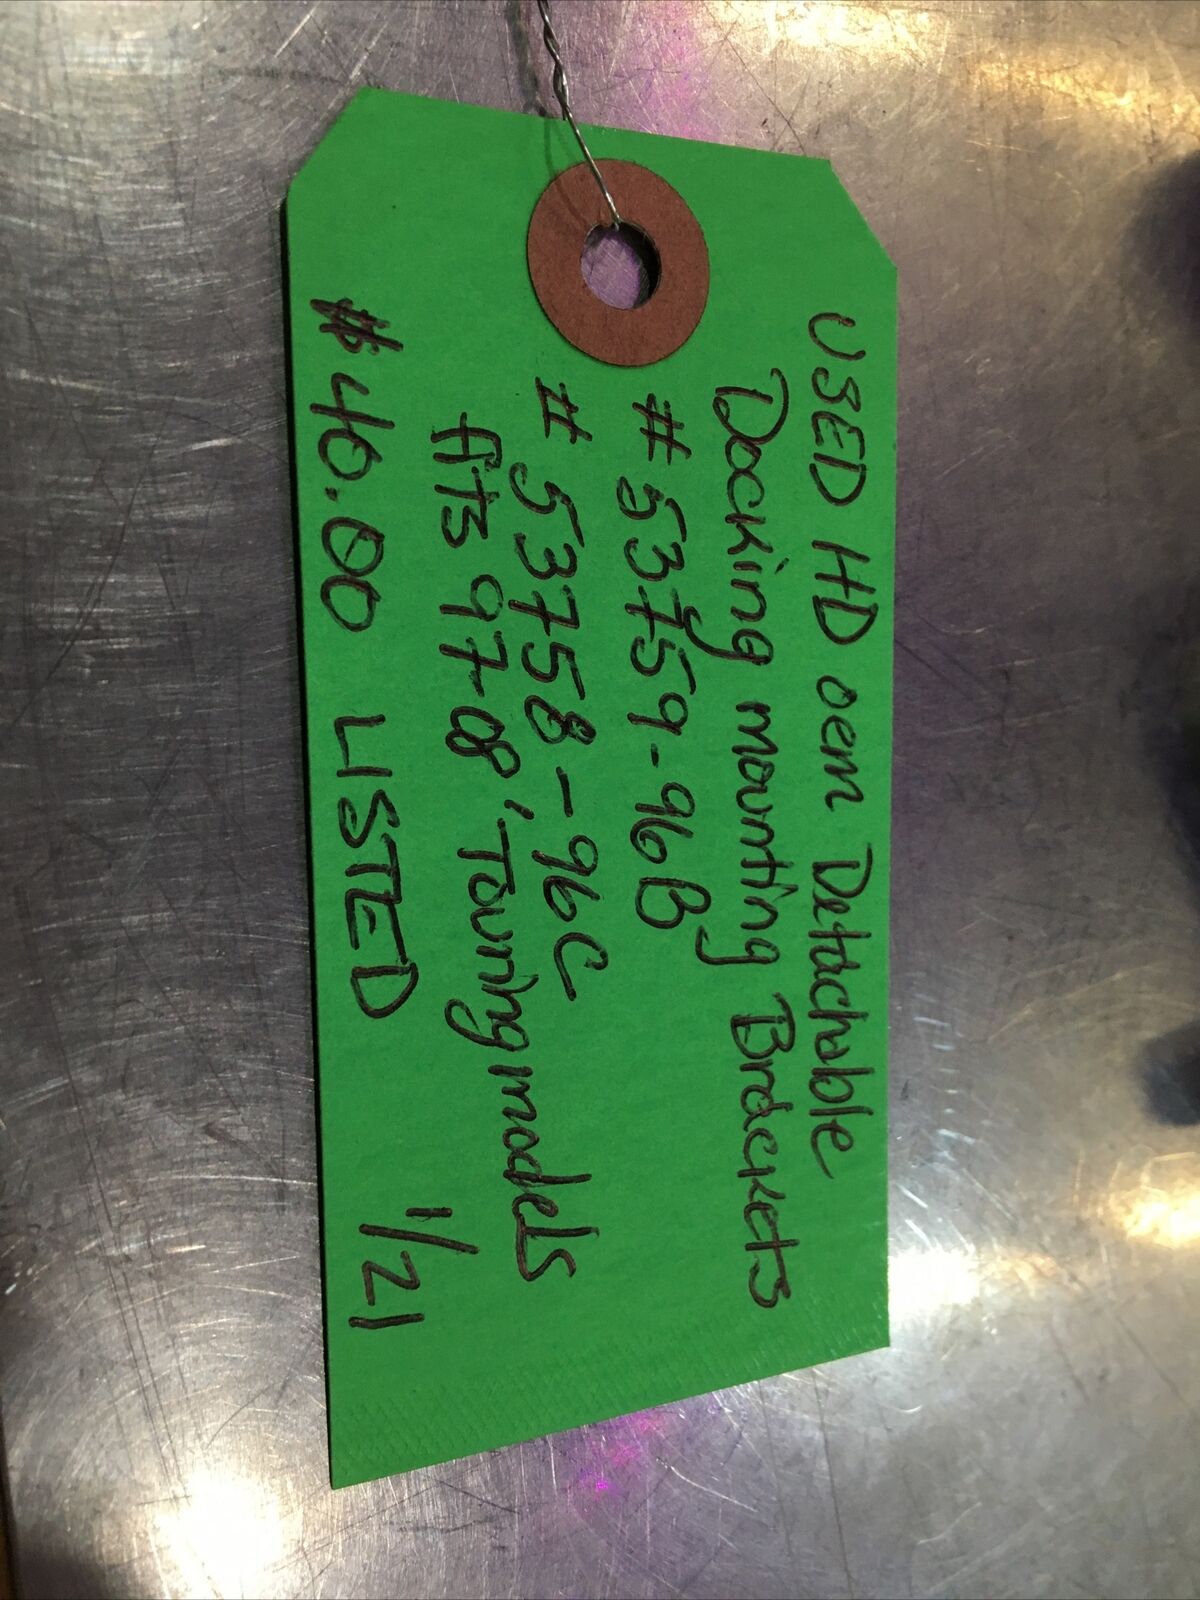 USED HD oem Detachable
Docking mounting Brackets
# 53759-96B
# 53758-96C
fits 97-08, Touring models
$40.00 LISTED 1/21